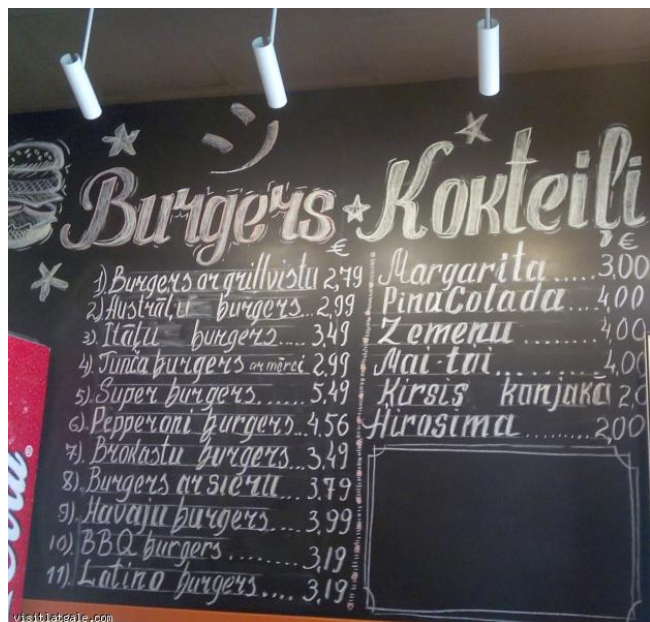 Burgers
€
1) Burgers ar grillvistu 2,79
2) Austrāļu burgers... 2,99
3). Itāļu burgers..... 3,49
4). Tunča burgers ar mērci 2,99
5). Super burgers....... 5,49
6). Pepperoni burgers.... 4,56
7). Brokastu burgers... 3,49
8). Burgers ar sieru... 3.79
9). Havaju burgers.... 3,99
10). BBQ burgers ........ 3,19
11). Latino burgers .... 3,19
Kokteiļi
€
Margarita.....3,00
PinaColada.... 4,00
Zemenu ..... 4,00
Mai-tai......... 4,00
Ķirsis konjakā 2,0
Hirosima ......... 2,00
Cola
®
visitlatgale.com